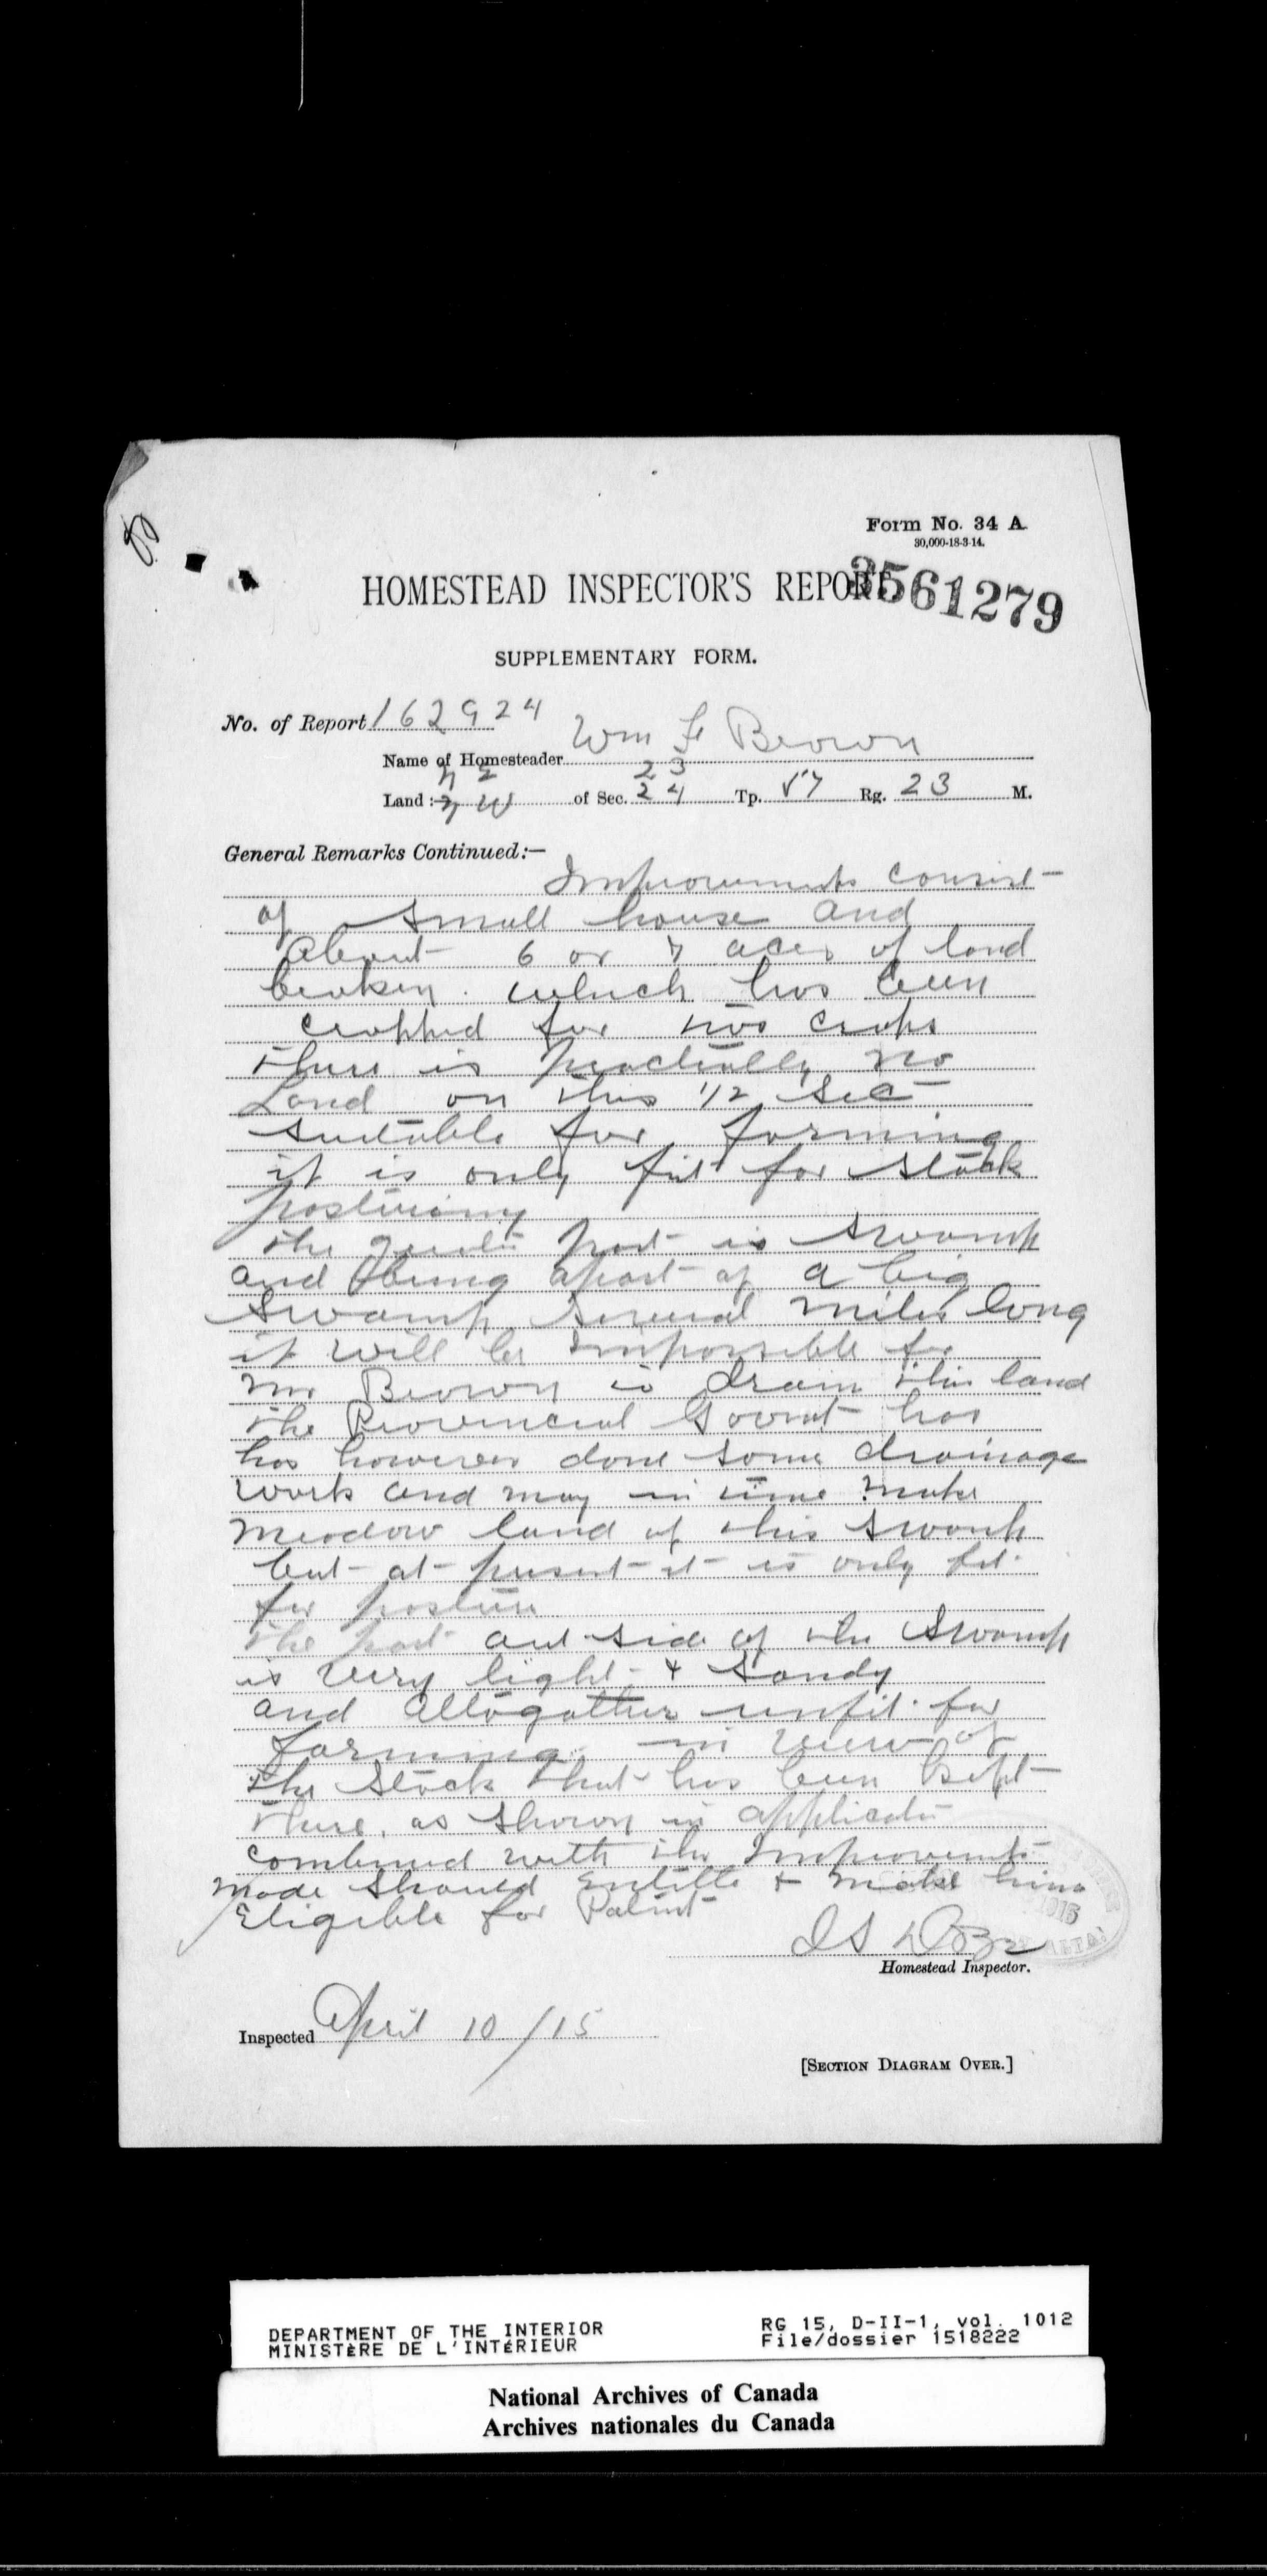 Form No. 34 A.
30,000-18-3-14.
HOMESTEAD INSPECTOR'S REPORT
3561279
SUPPLEMENTARY FORM.
No. of Report 162924
Name of Homesteader Wm F Brown
n E 23
Land:— n W of Sec. 24 Tp. 57 Rg. 23 M.
General Remarks Continued:—
Improvements consist
of small house and
about 6 or 7 aces of land
broken. which has been
cropped for two crops
there is practially no
Land on this 1/2 Sec
suitable for farming
it is only fit for stock
pasturing
the greater part is swamp
and being apart of a big
swamp several miles long
it will be Impossible for
Mr Brown to drain this land
the Provincial Govmt has
has however done some drainage
work and may in time make
meadow land of this swamp
but at present it is only fit
for pasture
the part out side of the Swamp
is very light & sandy
and altogather unfit for
farming. in view of
the stock that has been kept
there, as shown in applicatn
combined with the Improvemts
made should Entitle & make him
Eligible for Patent
Homestead Inspector.
Inspected April 10/15
[SECTION DIAGRAM OVER.]
DEPARTMENT OF THE INTERIOR
MINISTÈRE DE L'INTÉRIEUR
RG 15, D-II-1, vol. 1012
File/dossier 1518222
National Archives of Canada
Archives nationales du Canada